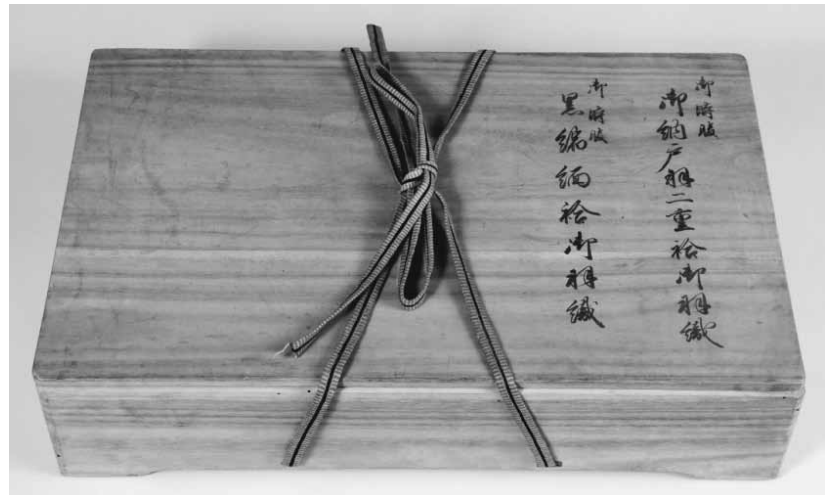 御時服
御納戸羽二重袷御羽織
御時服
黒縮緬袷御羽織